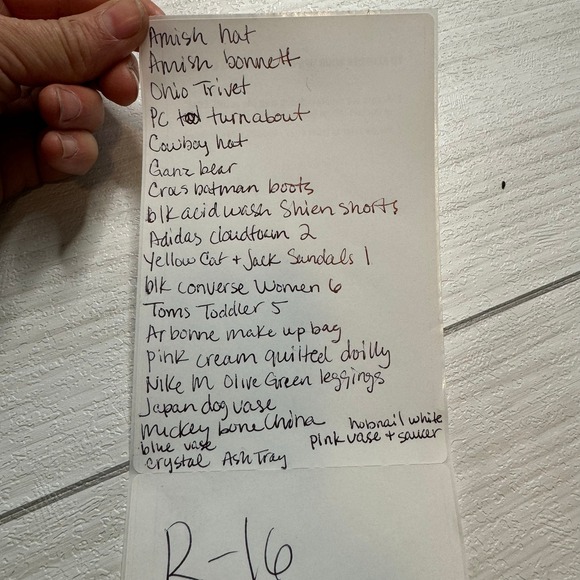 Amish hat
Amish bonnett
Ohio Trivet
PC turnabout
Cowboy hat
Ganz bear
Crocs batman boots
blk acid wash Shien shorts
Adidas cloudfoam 2
Yellow Cat + Jack Sandals 1
blk converse Women 6
Toms Toddler 5
Arbonne make up bag
pink cream quilted doilly
Nike M Olive Green leggings
Japan dog vase
Mickey bone China
hobnail white
blue vase
pink vase + saucer
crystal Ash Tray
R-16